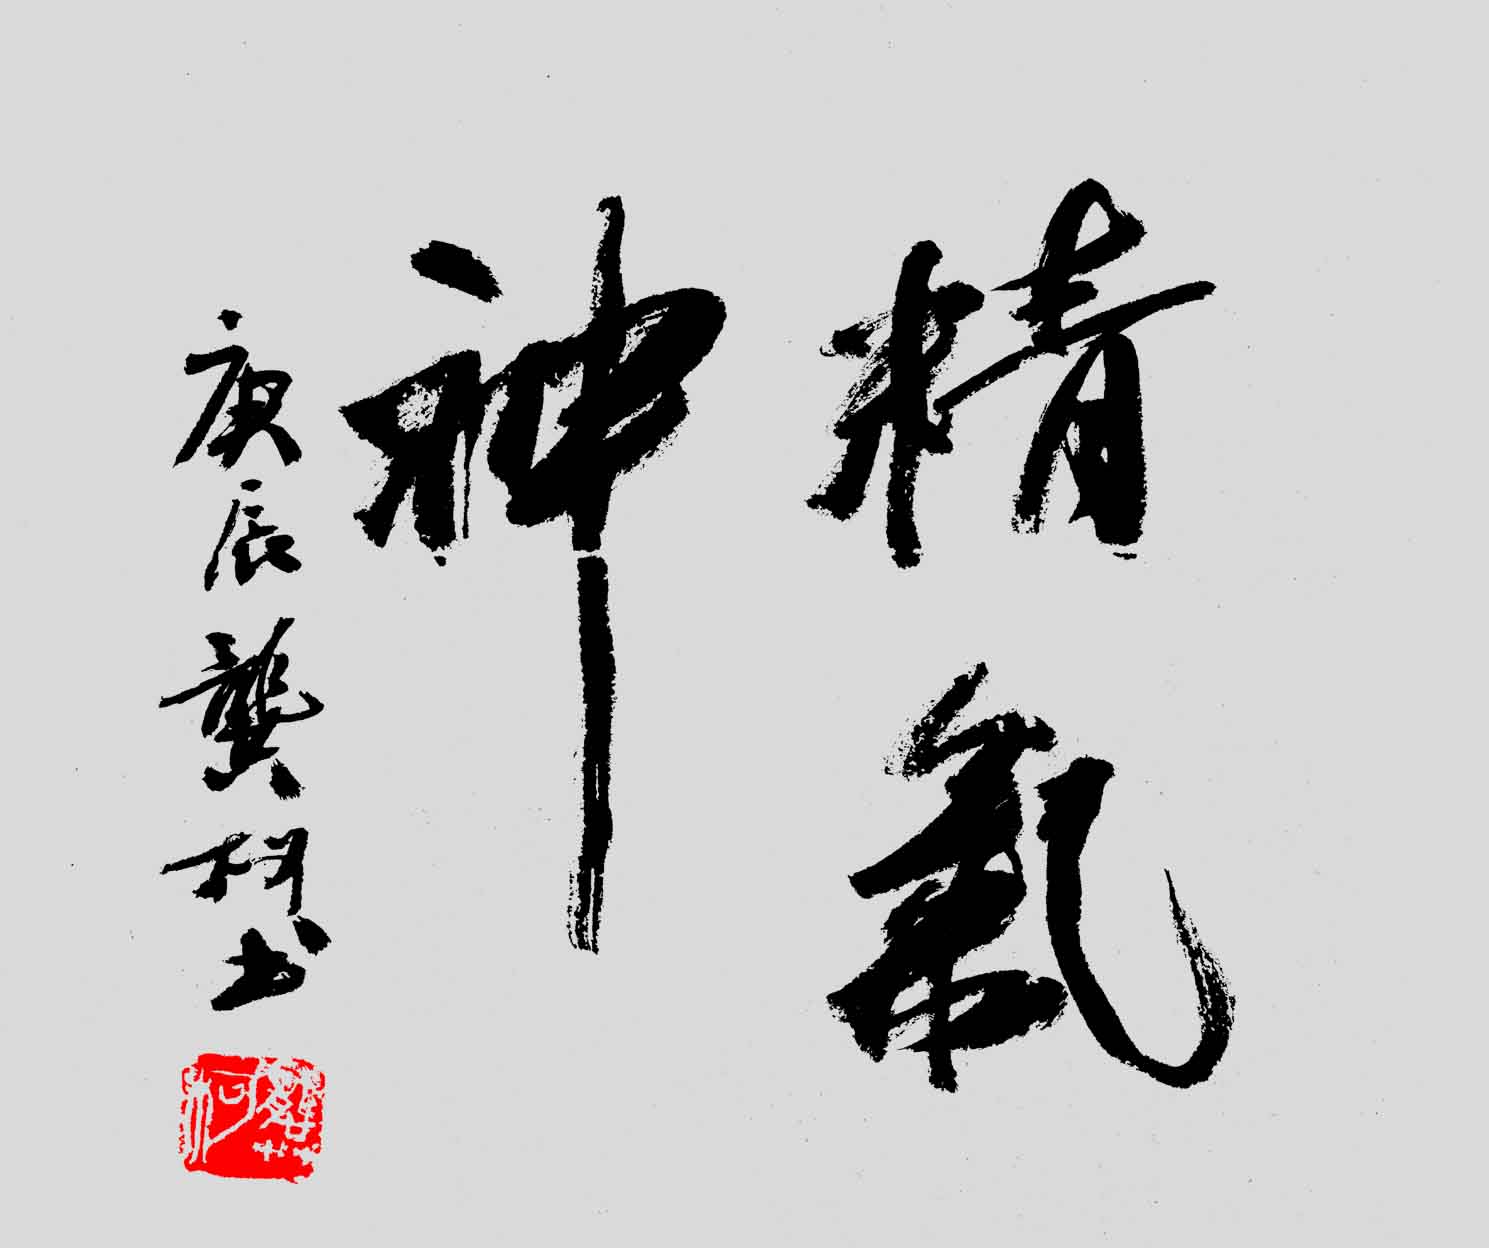 精氣
神
庚辰龔柯書